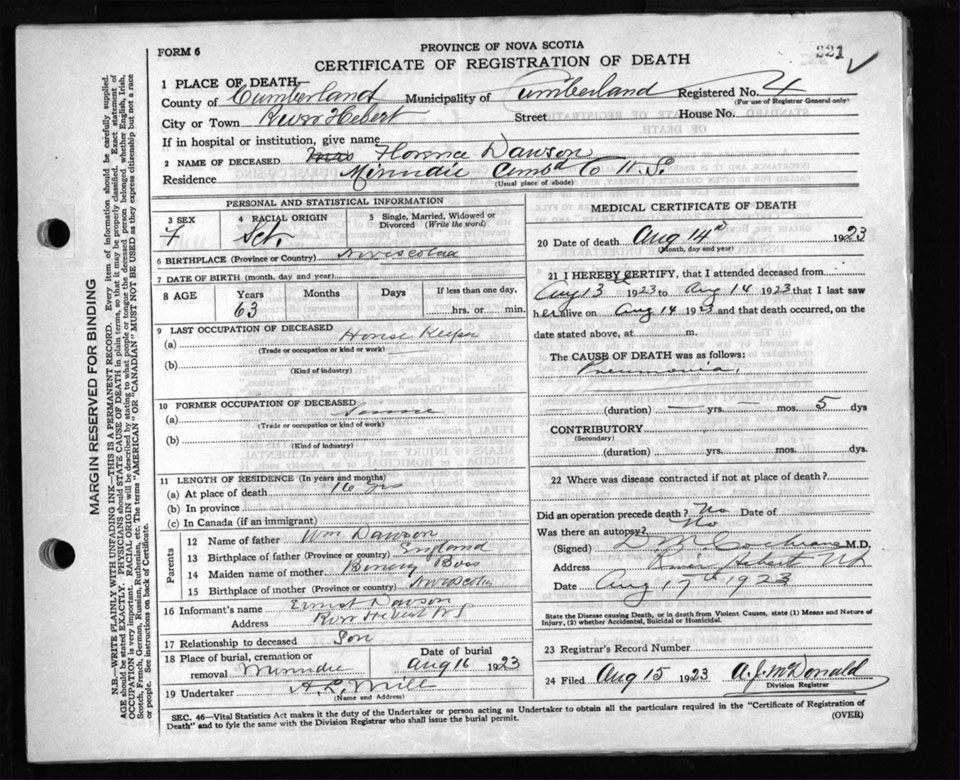 FORM 6
PROVINCE OF NOVA SCOTIA
CERTIFICATE OF REGISTRATION OF DEATH
221
1 PLACE OF DEATH—
County of Cumberland Municipality of Cumberland Registered No. 4
(For use of Registrar General only)
City or Town River Hebert Street House No.
If in hospital or institution, give name
2 NAME OF DECEASED Mrs Florence Dawson
Residence Minudie Cumb'd Co N.S.
(Usual place of abode)
MARGIN RESERVED FOR BINDING
N.B.—WRITE PLAINLY WITH UNFADING INK—THIS IS A PERMANENT RECORD. Every item of information should be carefully supplied.
AGE should be stated EXACTLY. PHYSICIANS should STATE CAUSE OF DEATH in plain terms, so that it may be properly classified. Exact statement of
OCCUPATION is very important. RACIAL ORIGIN will be described by stating to what people or tongue the deceased person belonged whether English, Irish,
Scotch, French, German, Russian, Ruthenian, etc. The terms "AMERICAN" OR "CANADIAN" MUST NOT BE USED as they express citizenship but not a race
or people. See instructions on back of Certificate.
PERSONAL AND STATISTICAL INFORMATION
3 SEX
F
4 RACIAL ORIGIN
Sct.
5 Single, Married, Widowed or
Divorced (Write the word)
6 BIRTHPLACE (Province or Country)
7 DATE OF BIRTH (month, day and year)
8 AGE Years Months Days If less than one day,
63 hrs. or min.
9 LAST OCCUPATION OF DECEASED
(a) House Keeper
(Trade or occupation or kind or work)
(b)
(Kind of industry)
10 FORMER OCCUPATION OF DECEASED
(a) Same
(Trade or occupation or kind of work)
(b)
(Kind of industry)
11 LENGTH OF RESIDENCE (In years and months)
(a) At place of death 16 yrs
(b) In province
(c) In Canada (if an immigrant)
Parents
12 Name of father Wm Dawson
13 Birthplace of father (Province or country) England
14 Maiden name of mother
15 Birthplace of mother (Province or country)
16 Informant's name Ernest Dawson
Address River Hebert NS
17 Relationship to deceased Son
18 Place of burial, cremation or
removal Minudie
Date of burial
Aug 16 1923
19 Undertaker A. L. Mill
(Name and Address)
MEDICAL CERTIFICATE OF DEATH
20 Date of death Aug 14th 1923
(Month, day and year)
21 I HEREBY CERTIFY, that I attended deceased from
Aug 13 1923 to Aug 14 1923 that I last saw
her alive on Aug 14 1923 and that death occurred, on the
date stated above, at m.
The CAUSE OF DEATH was as follows:
Pneumonia.
(duration) — yrs. — mos. 5 dys
CONTRIBUTORY
(Secondary)
(duration) yrs. mos. dys.
22 Where was disease contracted if not at place of death?
Did an operation precede death? No Date of
Was there an autopsy? No
(Signed) D. M. Cochrane M.D.
Address River Hebert NS
Date Aug 17th 1923
State the Disease causing Death, or in death from Violent Causes, state (1) Means and Nature of
Injury, (2) whether Accidental, Suicidal or Homicidal.
23 Registrar's Record Number
24 Filed Aug 15 1923 A. J. McDonald
Division Registrar
SEC. 46—Vital Statistics Act makes it the duty of the Undertaker or person acting as Undertaker to obtain all the particulars required in the "Certificate of Registration of
Death" and to fyle the same with the Division Registrar who shall issue the burial permit. (OVER)